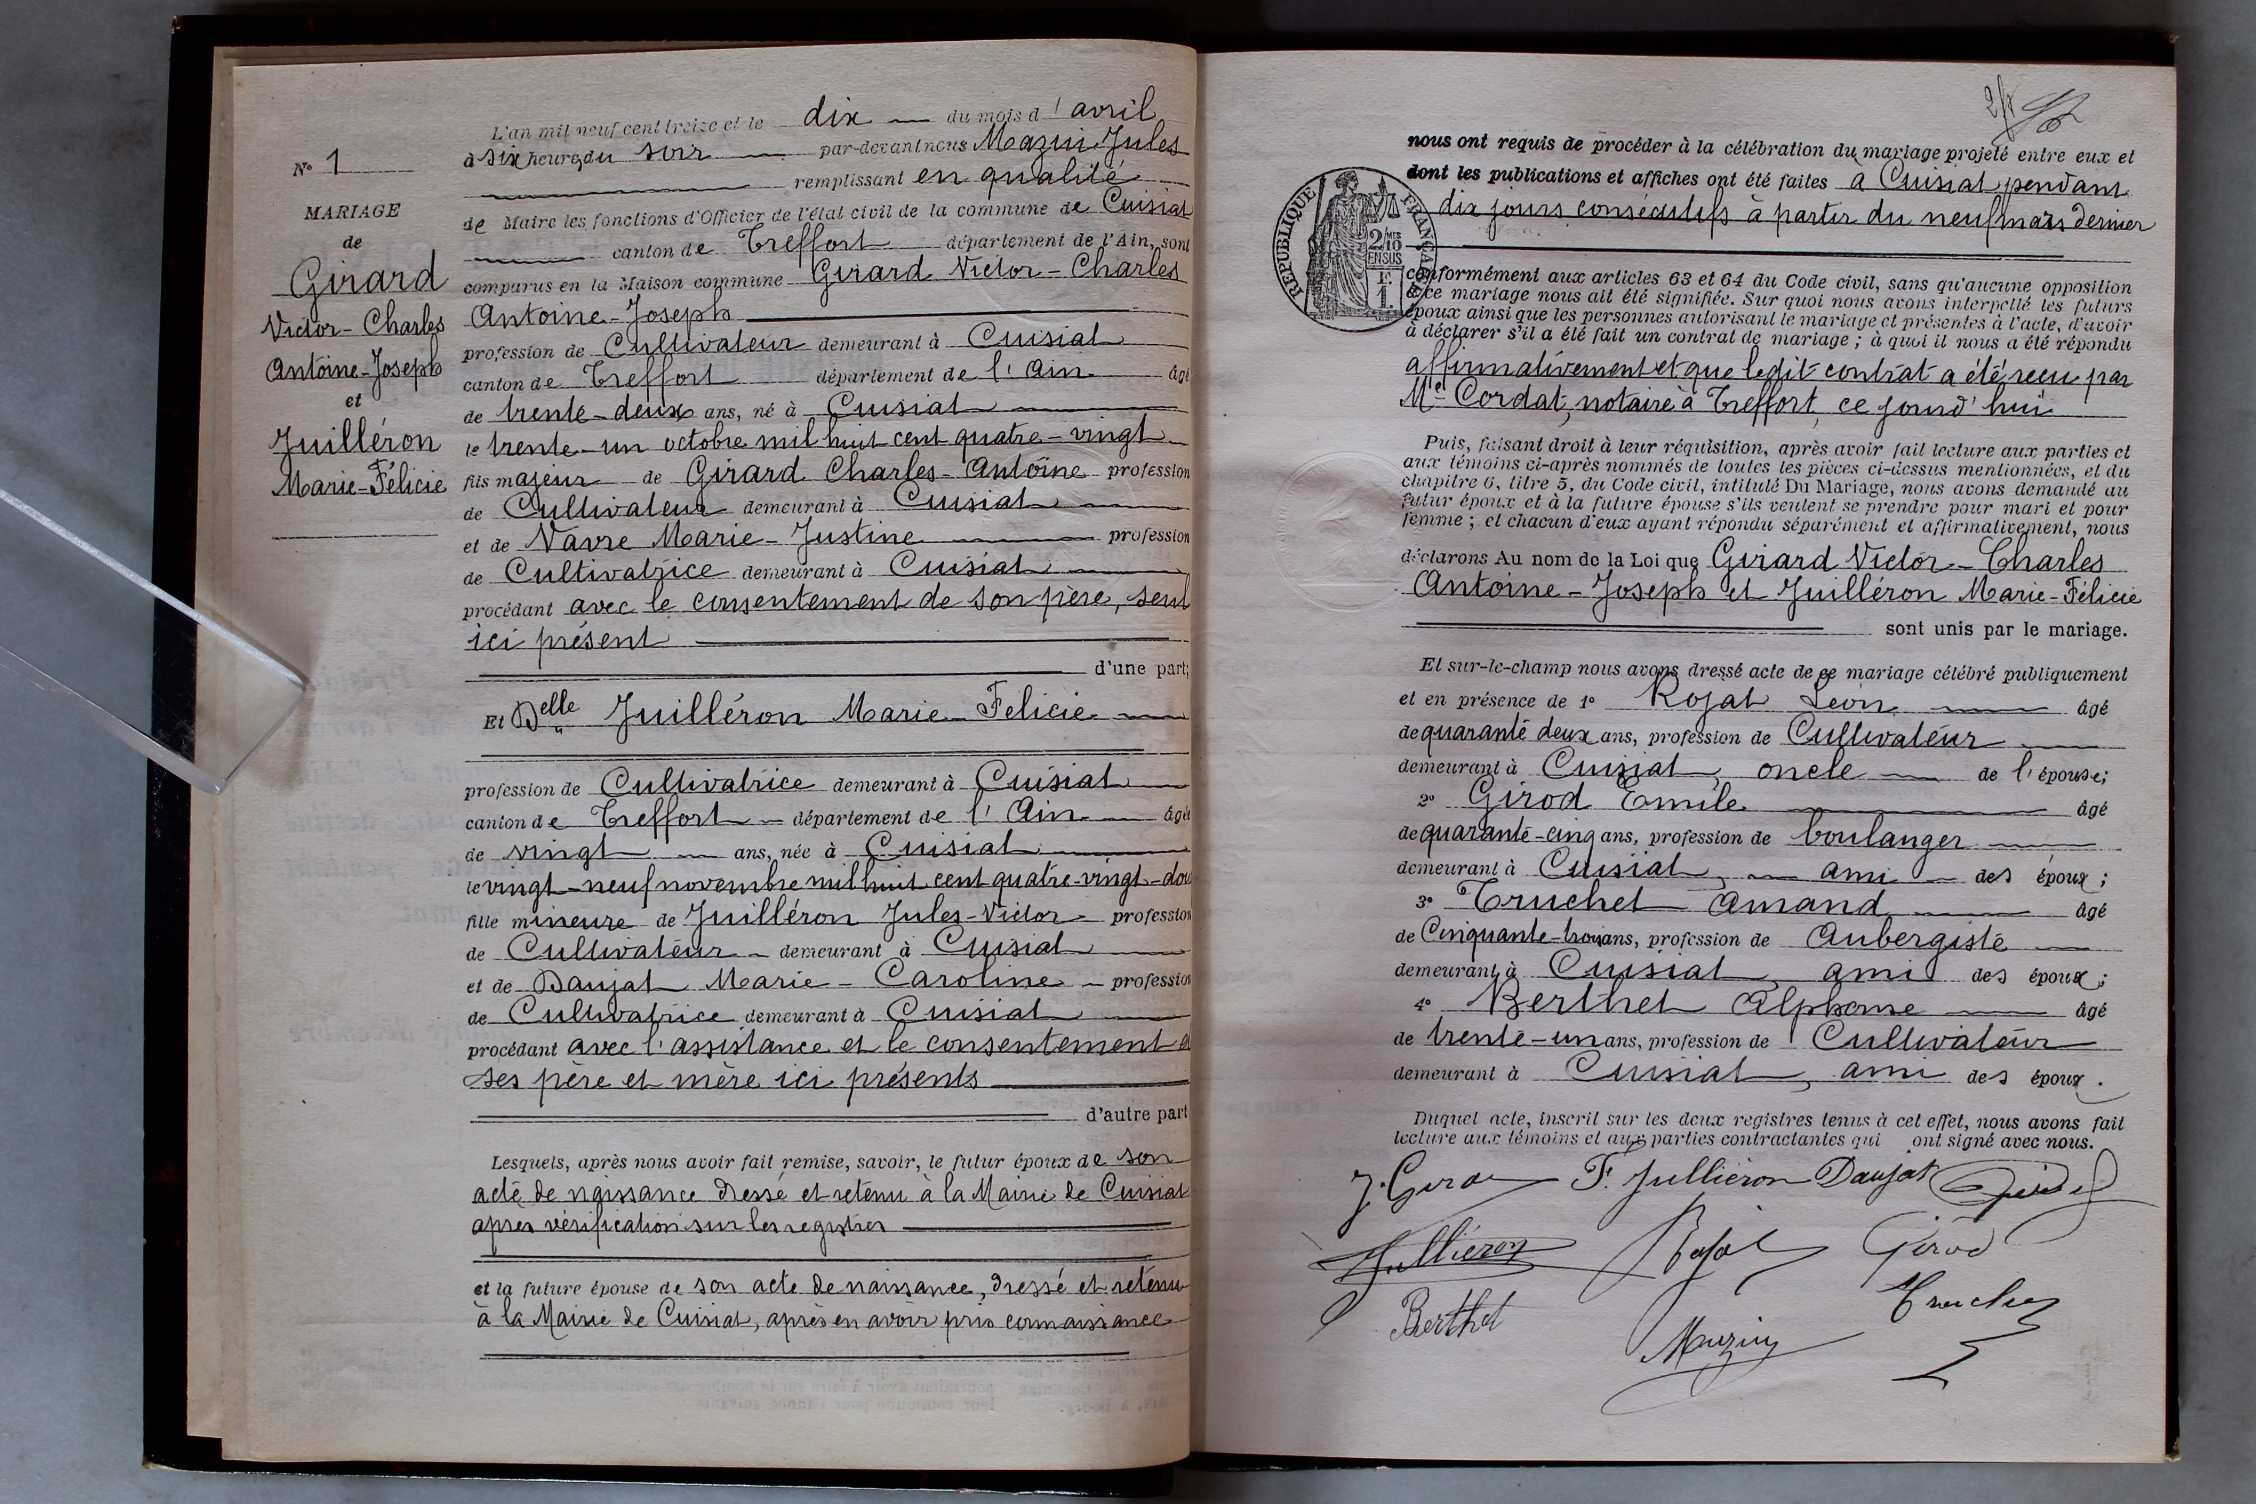 N° 1
MARIAGE
de
Girard
Victor-Charles
Antoine-Joseph
et
Juilléron
Marie-Félicie
L'an mil neuf cent treize et le dix du mois d'avril
à six heures du soir par-devant nous Mazuir Jules
remplissant en qualité
de Maire les fonctions d'Officier de l'état civil de la commune de Cuisiat
canton de Treffort département de l'Ain, sont
comparus en la Maison commune Girard Victor-Charles
Antoine-Joseph
profession de Cultivateur demeurant à Cuisiat
canton de Treffort département de l'Ain âgé
de trente-deux ans, né à Cuisiat
le trente-un octobre mil huit cent quatre-vingt
fils majeur de Girard Charles-Antoine profession
de Cultivateur demeurant à Cuisiat
et de Navre Marie-Justine profession
de Cultivatrice demeurant à Cuisiat
procédant avec le consentement de son père, seul
ici présent
d'une part;
Et Delle Juilléron Marie-Felicie
profession de Cultivatrice demeurant à Cuisiat
canton de Treffort département de l'Ain âgée
de vingt ans, née à Cuisiat
le vingt-neuf novembre mil huit cent quatre-vingt-dou
fille mineure de Juilléron Jules-Victor profession
de Cultivateur demeurant à Cuisiat
et de Daujat Marie-Caroline profession
de Cultivatrice demeurant à Cuisiat
procédant avec l'assistance et le consentement d
ses père et mère ici présents
d'autre part
Lesquels, après nous avoir fait remise, savoir, le futur époux de son
acte de naissance dressé et retenu à la Mairie de Cuisiat
après vérification sur les registres
et la future épouse de son acte de naissance, dressé et retenu
à la Mairie de Cuisiat, après en avoir pris connaissance
2/7
RÉPUBLIQUE FRANÇAISE
2/10 EN SUS
1F.
nous ont requis de procéder à la célébration du mariage projeté entre eux et
dont les publications et affiches ont été faites à Cuisiat pendant
dix jours consécutifs à partir du neuf mars dernier
conformément aux articles 63 et 64 du Code civil, sans qu'aucune opposition
à ce mariage nous ait été signifiée. Sur quoi nous avons interpellé les futurs
époux ainsi que les personnes autorisant le mariage et présentes à l'acte, d'avoir
à déclarer s'il a été fait un contrat de mariage; à quoi il nous a été répondu
affirmativement et que ledit contrat a été reçu par
Me Cordat, notaire à Treffort, ce jourd'hui
Puis, faisant droit à leur réquisition, après avoir fait lecture aux parties et
aux témoins ci-après nommés de toutes les pièces ci-dessus mentionnées, et du
chapitre 6, titre 5, du Code civil, intitulé Du Mariage, nous avons demandé au
futur époux et à la future épouse s'ils veulent se prendre pour mari et pour
femme; et chacun d'eux ayant répondu séparément et affirmativement, nous
déclarons Au nom de la Loi que Girard Victor-Charles
Antoine-Joseph et Juilléron Marie-Félicie
sont unis par le mariage.
Et sur-le-champ nous avons dressé acte de ce mariage célébré publiquement
et en présence de 1° Rojat Léon âgé
de quarante deux ans, profession de Cultivateur
demeurant à Cuisiat, oncle de l'épouse;
2° Girod Emile âgé
de quarante-cinq ans, profession de boulanger
demeurant à Cuisiat, ami des époux;
3° Truchet Amand âgé
de Cinquante-trois ans, profession de Aubergiste
demeurant à Cuisiat, ami des époux;
4° Berthet Alphonse âgé
de trente-un ans, profession de Cultivateur
demeurant à Cuisiat, ami des époux.
Duquel acte, inscrit sur les deux registres tenus à cet effet, nous avons fait
lecture aux témoins et aux parties contractantes qui ont signé avec nous.
J. Girard F. Jullieron Daujat
Jullieron Rojat Girod
Berthet Mazuir Truchet